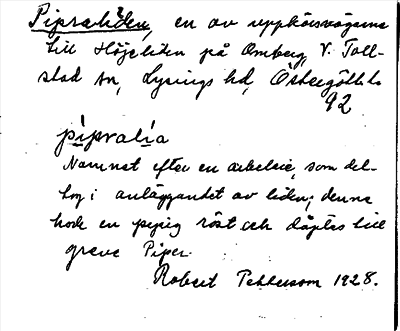 Pipraliden, en av uppkörsvägarna
till Höjeliden på Omberg, V. Toll-
stad sn, Lysings hd, Östergötl. l.
92
pipralia
Namnet efter en arbetare, som del-
tog i anläggandet av liden; denne
hade en pipig röst och döptes till
greve Piper.
Robert Pettersson 1928.